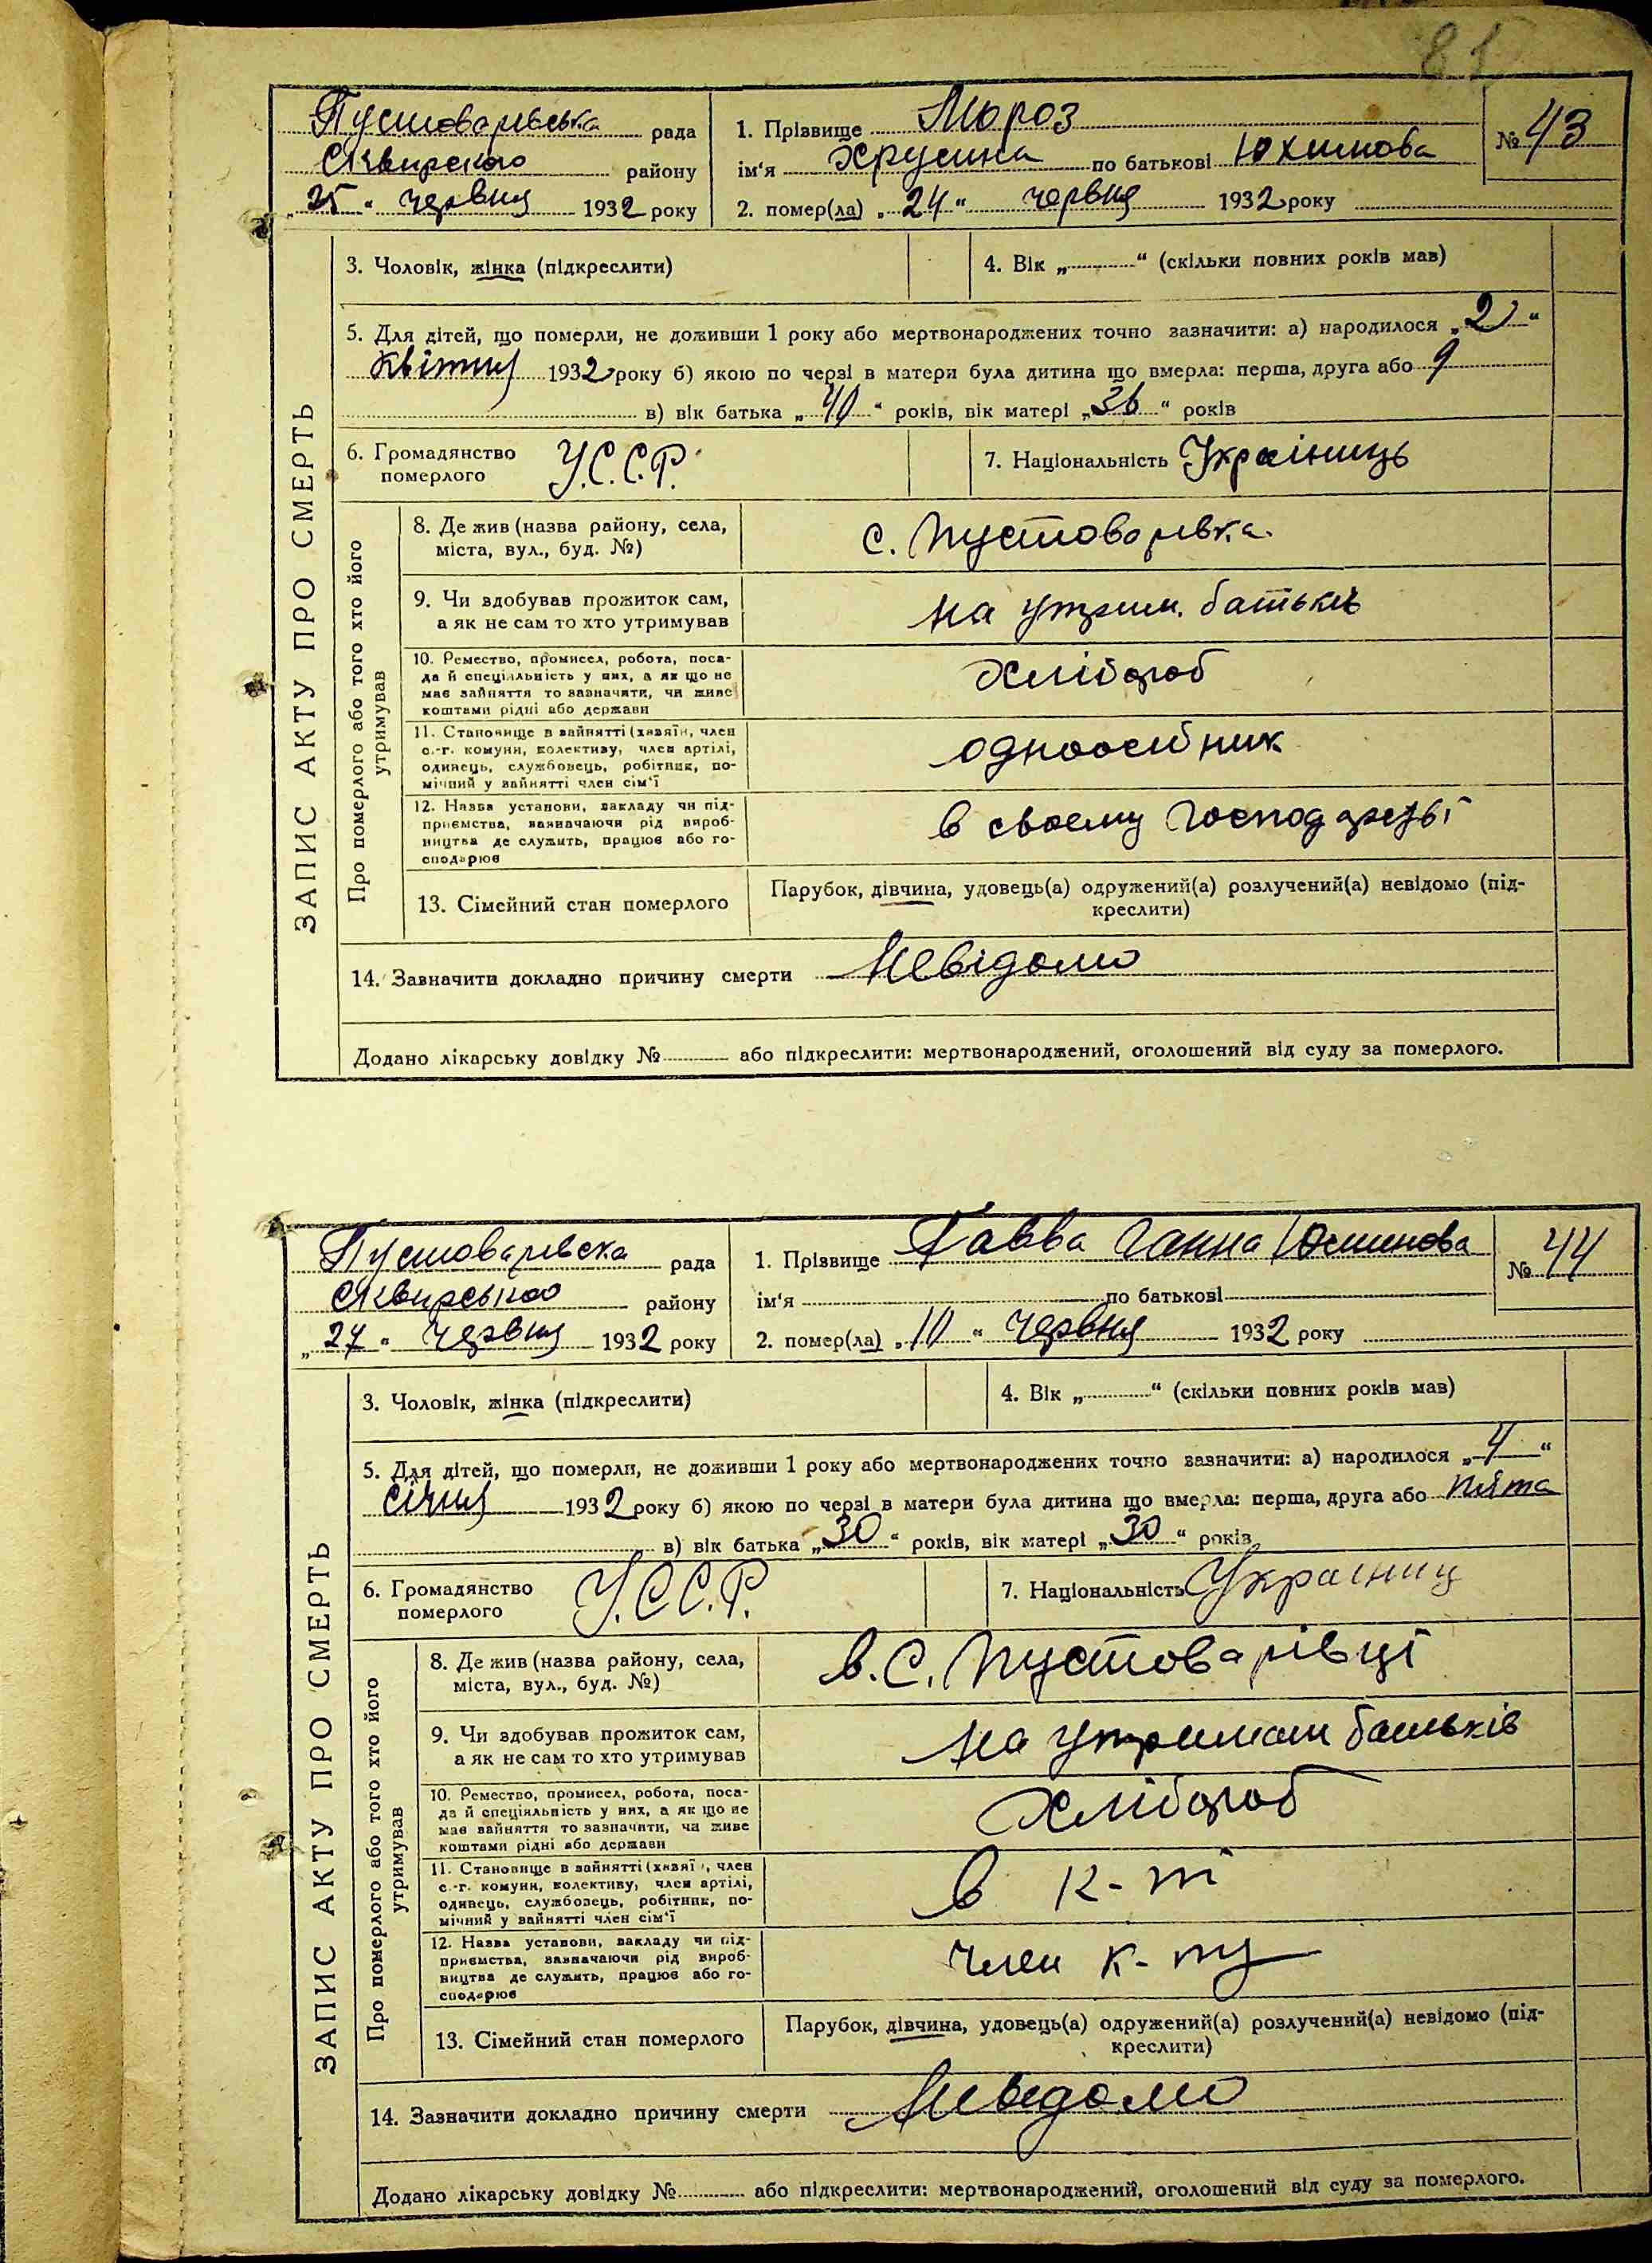 81
Пустоварівська рада
Сквирского району
„25“ червня 1932 року
1. Прізвище Мороз
ім'я Хрусина по батькові Юхимова
2. помер(ла) „24“ червня 1932 року
№ 43
ЗАПИС АКТУ ПРО СМЕРТЬ
3. Чоловік, жінка (підкреслити)
4. Вік „ “ (скільки повних років мав)
5. Для дітей, що померли, не доживши 1 року або мертвонароджених точно зазначити: а) народилося „2“
квітня 1932 року б) якою по черзі в матери була дитина що вмерла: перша, друга або 9
в) вік батька „40“ років, вік матері „36“ років
6. Громадянство
померлого
У.С.С.Р.
7. Національність Українець
Про померлого або того хто його
утримував
8. Де жив (назва району, села,
міста, вул., буд. №)
с. Пустоварівка.
9. Чи здобував прожиток сам,
а як не сам то хто утримував
на утрим. батьків
10. Ремество, промисел, робота, поса-
да й спеціяльність у них, а як що не
має зайняття то зазначити, чи живе
коштами рідні або держави
Хлібороб
11. Становище в зайнятті (хазяїн, член
с.-г. комуни, колективу, член артілі,
одинець, службовець, робітник, по-
мічний у зайнятті член сім'ї
одноосібник
12. Назва установи, закладу чи під-
приємства, зазначаючи рід вироб-
ництва де служить, працює або го-
сподарює
в своему господарстві
13. Сімейний стан померлого
Парубок, дівчина, удовець(а) одружений(а) розлучений(а) невідомо (під-
креслити)
14. Зазначити докладно причину смерти Невідомо
Додано лікарську довідку № або підкреслити: мертвонароджений, оголошений від суду за померлого.
Пустоварівска рада
Сквирського району
„27“ Червня 1932 року
1. Прізвище Кавва Ганна
ім'я по батькові
2. помер(ла) „10“ Червня 1932 року
№ 44
ЗАПИС АКТУ ПРО СМЕРТЬ
3. Чоловік, жінка (підкреслити)
4. Вік „ “ (скільки повних років мав)
5. Для дітей, що померли, не доживши 1 року або мертвонароджених точно зазначити: а) народилося „4“
січня 1932 року б) якою по черзі в матери була дитина що вмерла: перша, друга або пята
в) вік батька „30“ років, вік матері „30“ років
6. Громадянство
померлого
У.С.С.Р.
7. Національність Украіниц
Про померлого або того хто його
утримував
8. Де жив (назва району, села,
міста, вул., буд. №)
в. с. Пустоварівці
9. Чи здобував прожиток сам,
а як не сам то хто утримував
на утриман батьків
10. Ремество, промисел, робота, поса-
да й спеціяльність у них, а як що не
має зайняття то зазначити, чи живе
коштами рідні або держави
Хлібороб
11. Становище в зайнятті (хазяї , член
с.-г. комуни, колективу, член артілі,
одинець, службовець, робітник, по-
мічний у зайнятті член сім'ї
в к-ті
12. Назва установи, закладу чи під-
приємства, зазначаючи рід вироб-
ництва де служить, працює або го-
сподарює
член к-ту
13. Сімейний стан померлого
Парубок, дівчина, удовець(а) одружений(а) розлучений(а) невідомо (під-
креслити)
14. Зазначити докладно причину смерти Невідомо
Додано лікарську довідку № або підкреслити: мертвонароджений, оголошений від суду за померлого.